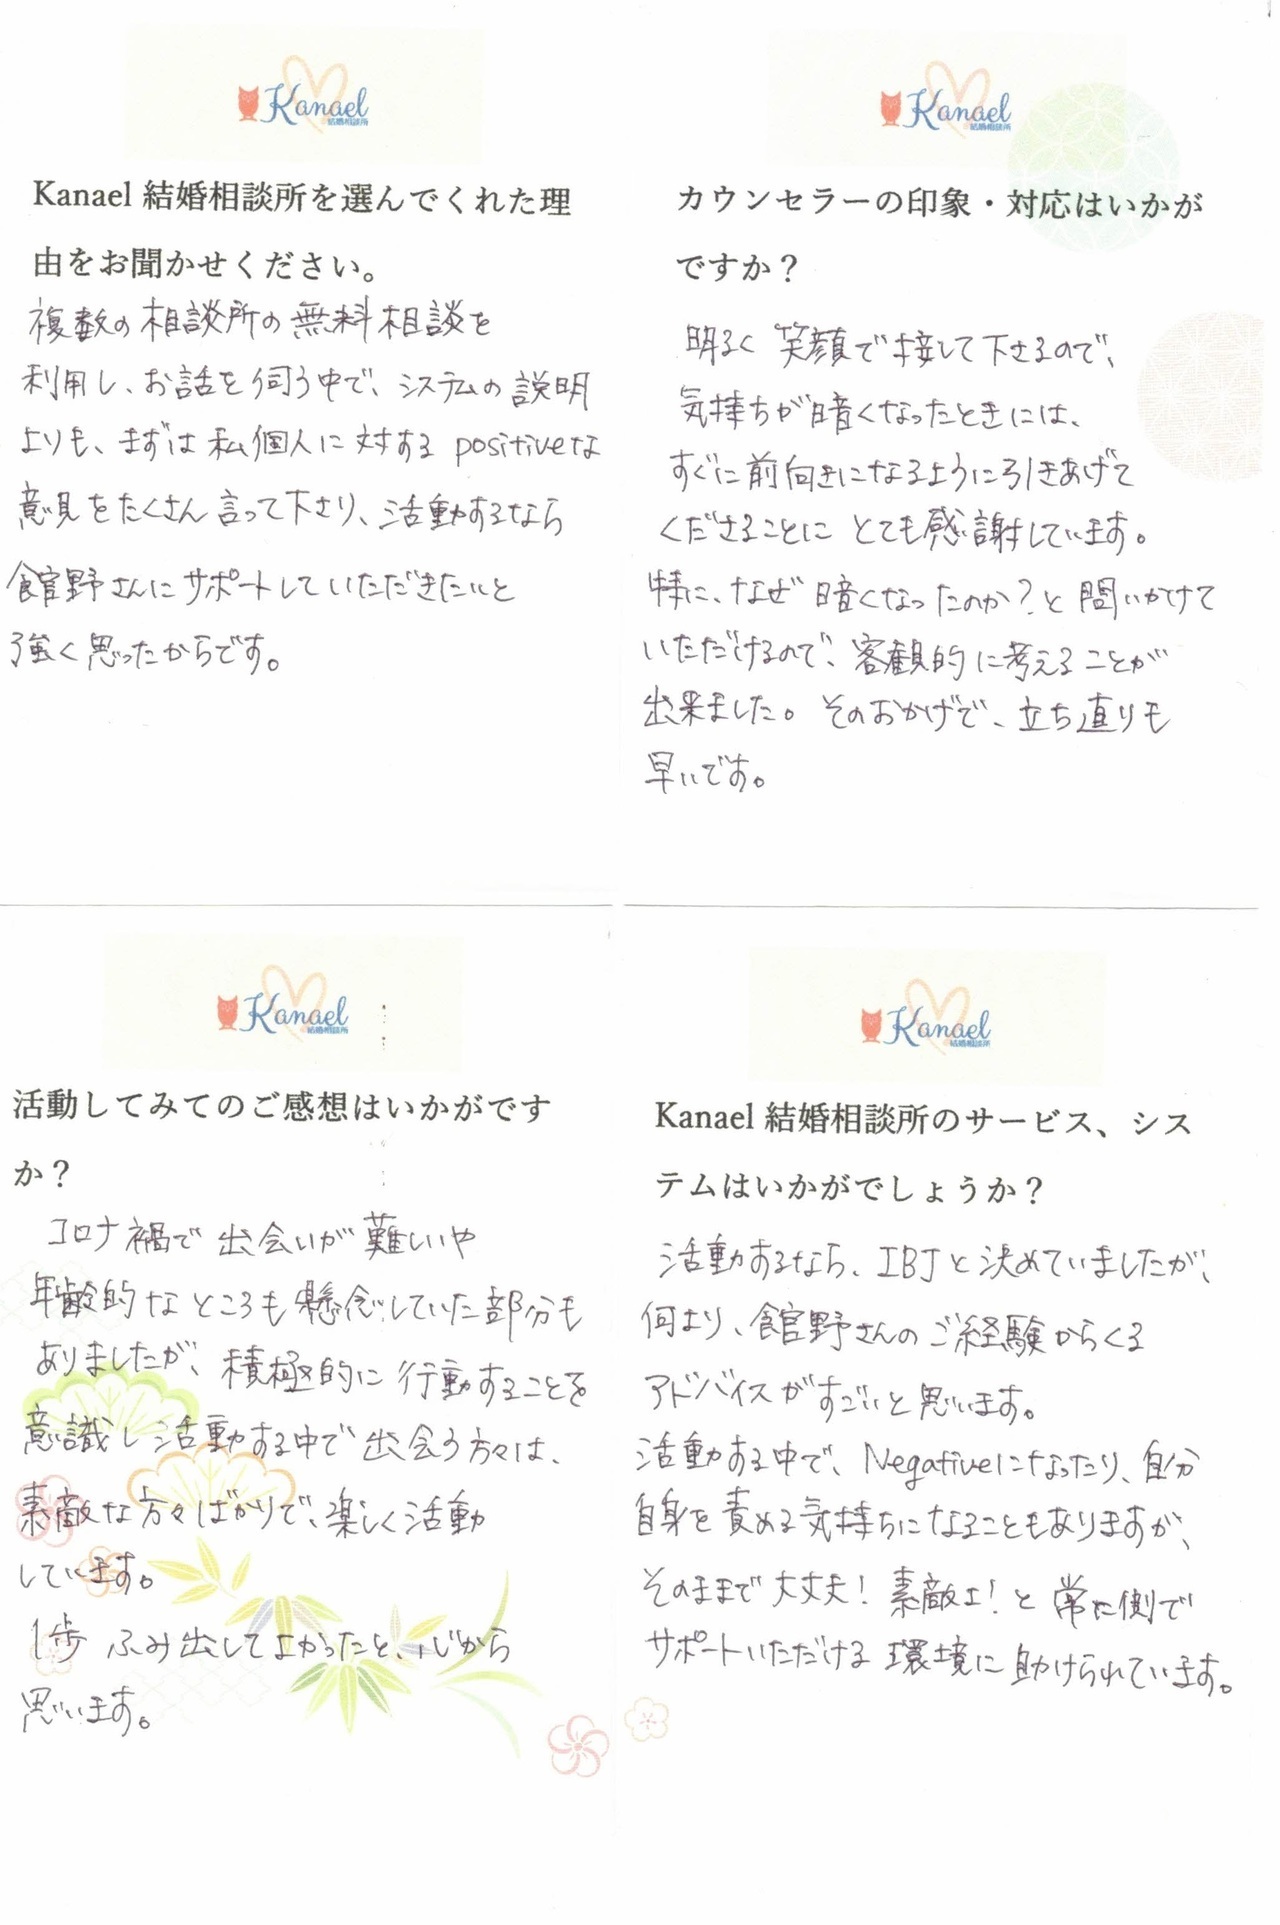 Kanael
結婚相談所
Kanael 結婚相談所を選んでくれた理
由をお聞かせください。
複数の相談所の無料相談を
利用し、お話を伺う中で、システムの説明
よりも、まずは私個人に対するpositiveな
意見をたくさん言って下さり、活動するなら
館野さんにサポートしていただきたいと
強く思ったからです。
Kanael
結婚相談所
カウンセラーの印象・対応はいかが
ですか？
明るく笑顔で接して下さるので、
気持ちが暗くなったときには、
すぐに前向きになるように引きあげて
くださることにとても感謝しています。
特に、なぜ暗くなったのか？と問いかけて
いただけるので、客観的に考えることが
出来ました。そのおかげで、立ち直りも
早いです。
Kanael
結婚相談所
活動してみてのご感想はいかがです
か？
コロナ禍で出会いが難しいや
年齢的なところも懸念していた部分も
ありましたが、積極的に行動することを
意識し活動する中で出会う方々は、
素敵な方々ばかりで、楽しく活動
しています。
1歩ふみ出してよかったと、心から
思います。
Kanael
結婚相談所
Kanael 結婚相談所のサービス、シス
テムはいかがでしょうか？
活動するなら、IBJと決めていましたが、
何より、館野さんのご経験からくる
アドバイスがすごいと思います。
活動する中で、Negativeになったり、自分
自身を責める気持ちになることもありますが、
そのままで大丈夫！素敵よ！と常に側で
サポートいただける環境に助けられています。